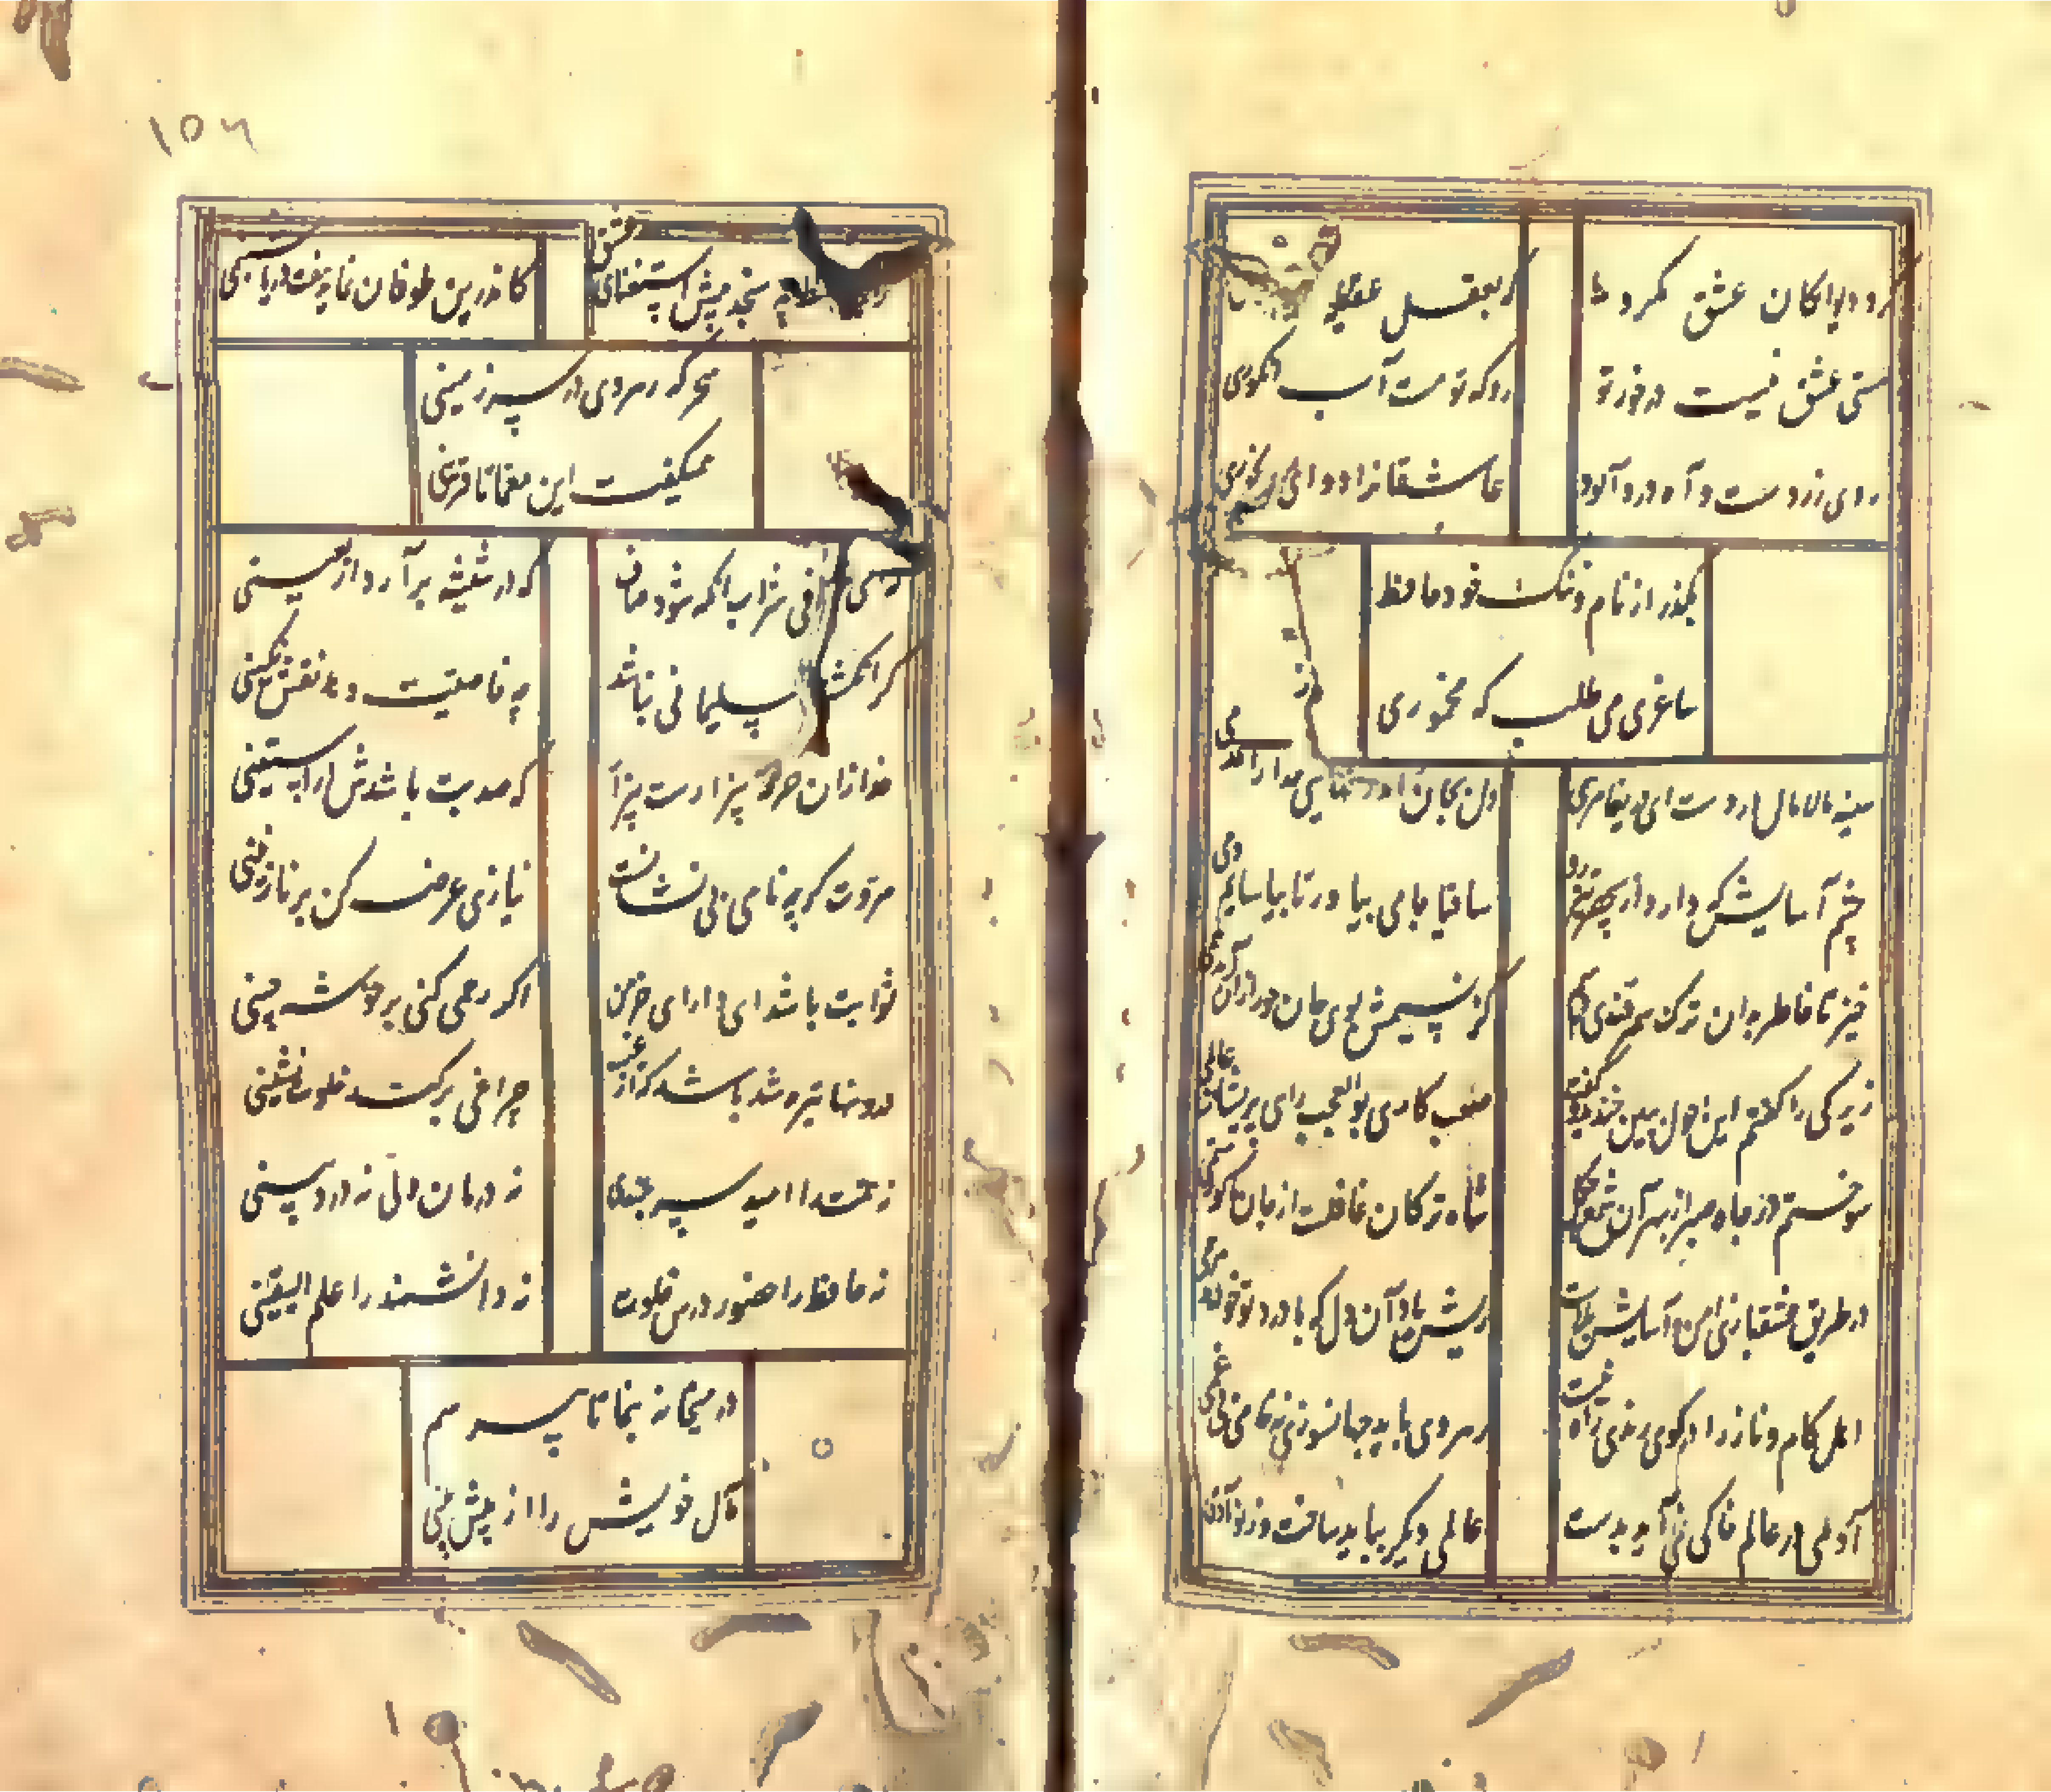 گرد دیوانگان عشق مگرد
که بعقل عقیله
مستی عشق نیست در سر تو
رو که تو مست آب انگوری
روی زردست و آه دردآلود
عاشقانرا دوای رنجوری
بگذر از نام و ننگ خود حافظ
ساغر می طلب که مخموری
سینه مالامال دردست ای دریغا مرهمی
دل بجان آمد خدا را همدمی
چشم آسایش که دارد از سپهر تیزرو
ساقیا جامی بیاور تا بیاسایم دمی
خیز تا خاطر بدان ترک سمرقندی دهیم
کز نسیمش بوی جوی مولیان آید همی
زیرکی را گفتم این احوال بین خندید و گفت
صعب کاری بوالعجب رای پریشان عالمی
سوختم در چاه صبر از بهر آن شمع چگل
شاه ترکان غافلست از حال ما کو رستمی
در طریق عشقبازی امن و آسایش بلاست
ریش باد آن دل که با درد تو خواهد مرهمی
اهل کام و ناز را در کوی رندی راه نیست
رهروی باید جهانسوزی نه خامی بی غمی
آدمی در عالم خاکی نمی آید بدست
عالمی دیگر بباید ساخت وز نو آدمی
۱۵۶
سنجد پیش استغنای عشق
کاندرین طوفان نماید هفت دریا شبنمی
سحرگه رهروی در سرزمینی
همیگفت این معما با قرینی
که ای صوفی شراب آنگه شود صاف
که در شیشه برآرد اربعینی
گر انگشت سلیمانی نباشد
چه خاصیت دهد نقش نگینی
خدا زان خرقه بیزارست
که صد بت باشدش در آستینی
مروت گرچه نامی بی نشانست
نیازی عرض کن بر نازنینی
ثوابت باشد ای دارای خرمن
اگر رحمی کنی بر خوشه چینی
درونها تیره شد باشد که از غیب
چراغی برکند خلوت نشینی
نه همت را امید سربلندی
نه درمان دلی نه درد دینی
نه حافظ را حضور درس خلوت
نه دانشمند را علم الیقینی
در میخانه بنما تا بپرسم
مآل خویش را از پیش بینی